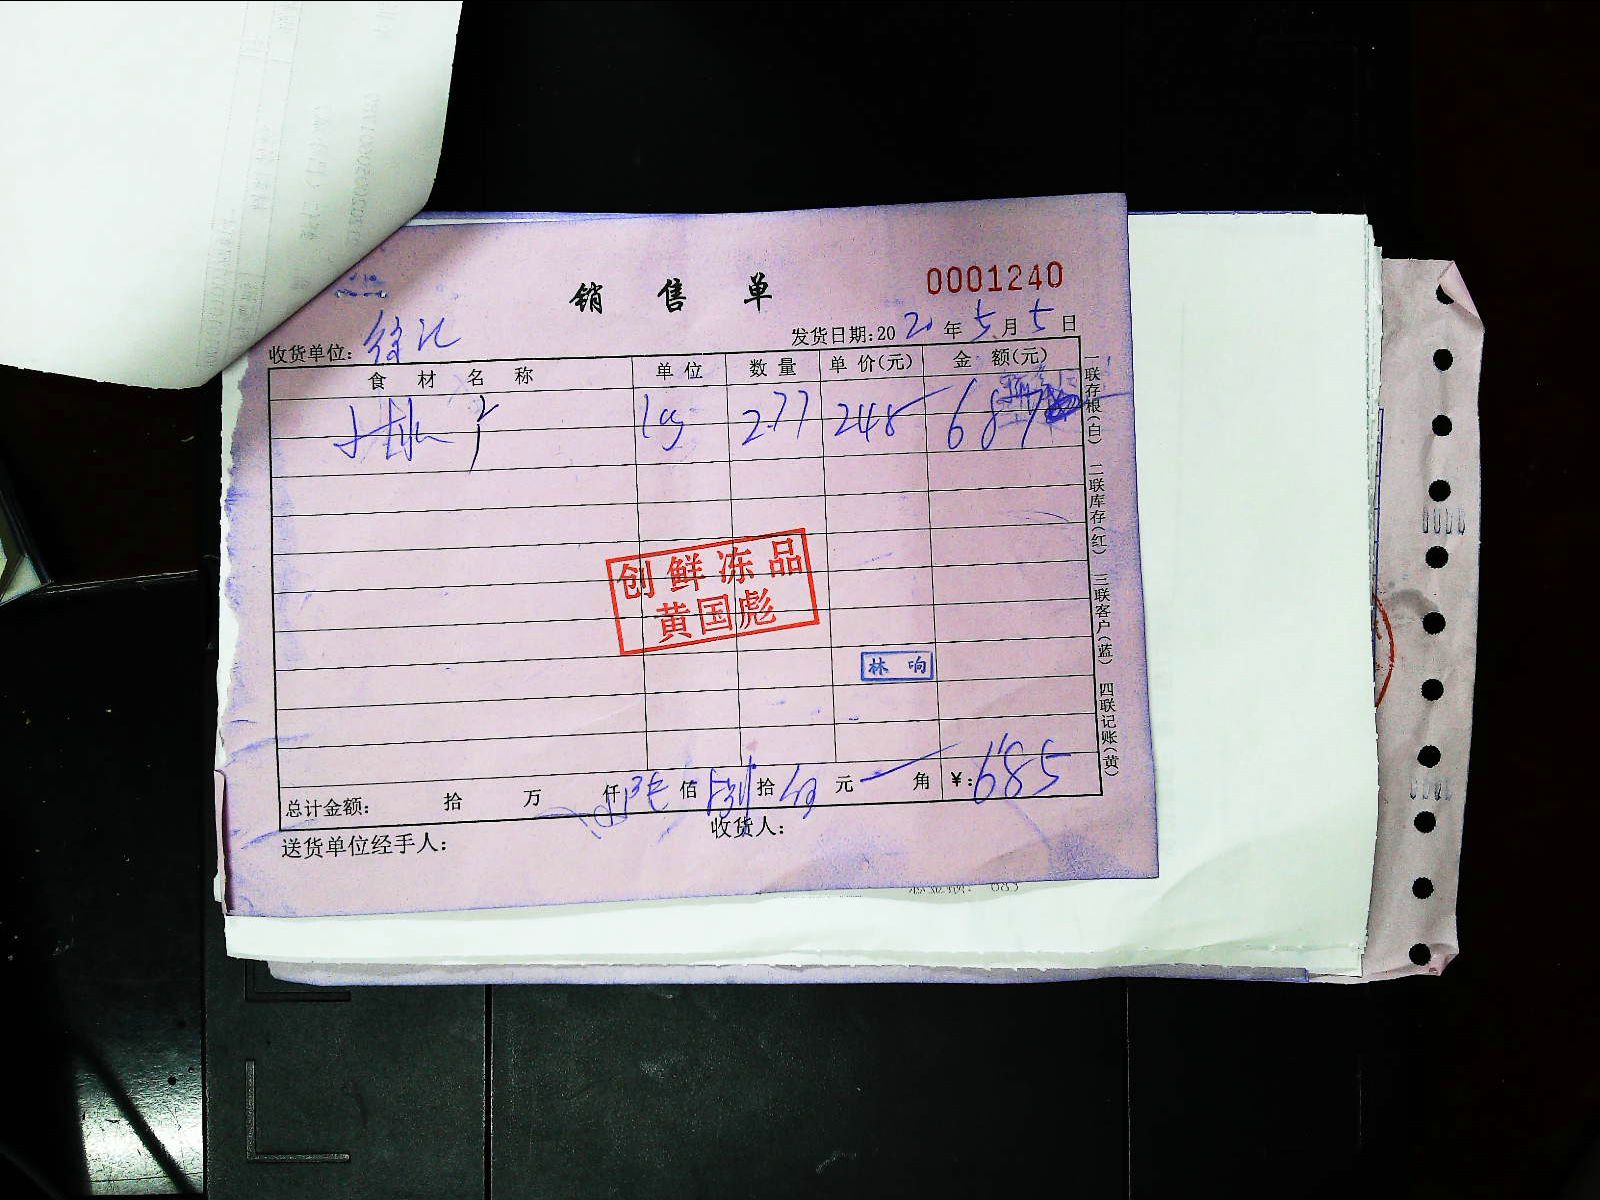 销 售 单
0001240
收货单位: 徐汇
发货日期:2020年5月5日
食 材 名 称 单位 数量 单价(元) 金 额(元)
277 248 687
创鲜冻品
黄国彪
林 响
总计金额: 拾 万 仟 陆佰 捌拾 伍元 角 ¥:685
送货单位经手人: 收货人:
一联存根(白) 二联库存(红) 三联客户(蓝) 四联记账(黄)